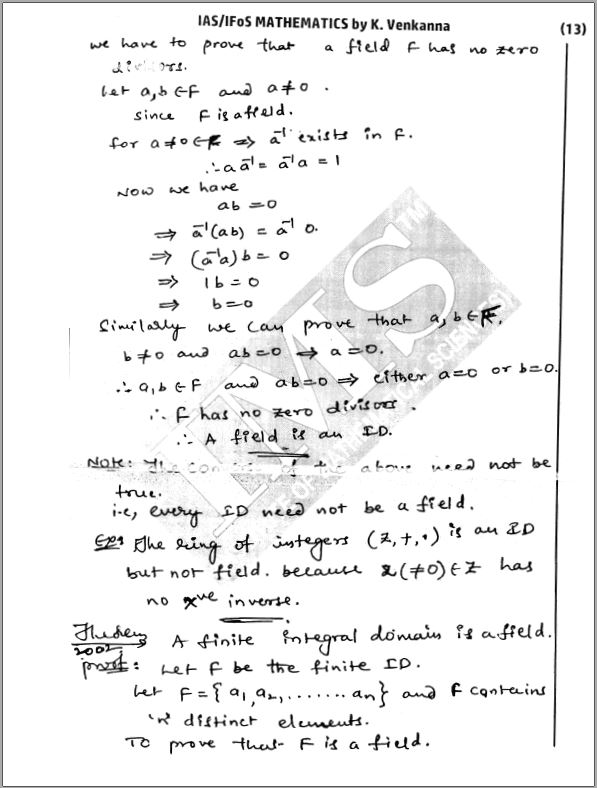 IAS/IFoS MATHEMATICS by K. Venkanna (13)
we have to prove that a field F has no zero
divisors.
Let a,b ∈ F and a ≠ 0 .
since F is a field.
for a ≠ 0 ∈ F ⇒ a⁻¹ exists in F.
∴ a a⁻¹ = a⁻¹ a = 1
Now we have
ab = 0
⇒ a⁻¹(ab) = a⁻¹ 0.
⇒ (a⁻¹a) b = 0
⇒ 1b = 0
⇒ b = 0
Similarly we can prove that a, b ∈ F,
b ≠ 0 and ab = 0 ⇒ a = 0.
∴ a, b ∈ F and ab = 0 ⇒ either a = 0 or b = 0.
∴ F has no zero divisors .
∴ A field is an ID.
Note: The of the above need not be
true.
i.e, every ID need not be a field.
The ring of integers (Z, +, ·) is an ID
but not field. because 2(≠0) ∈ Z has
no xve inverse.
Theorem A finite integral domain is a field.
2002
proof: Let F be the finite ID.
Let F = { a₁, a₂, ....... aₙ } and F contains
'n' distinct elements.
To prove that F is a field.
IMS
TM